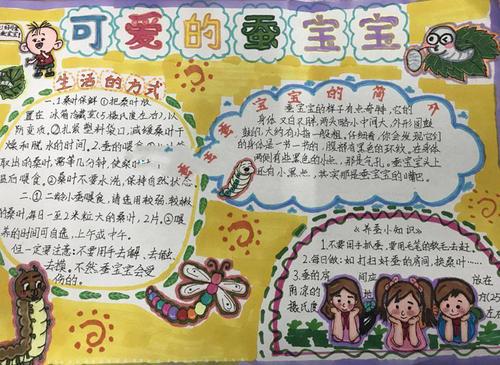 可爱的蚕宝宝
生活的方式
一.1.桑叶保鲜①把桑叶放
置在冰箱冷藏室(5摄氏度左右),以
防变质。②扎紧塑料袋口,减缓桑叶干
燥和脱水的时间。2.蚕的喂食
取出的桑叶需等几分钟,使桑叶
温后喂食。②桑叶不要水洗,保持自然状态
二.①一二龄小蚕喂食,请选用较弱、较嫩
的桑叶,每日一至2米粒大的桑叶,2片。②喂
养的时间可自选,上午或中午。
但一定要注意:不要用手去解、去触、
去摸。不然蚕宝宝会受
伤的。
蚕宝宝的简介
蚕宝宝的样子有点奇特,它的
身体又白又胖,两头略小中间大,外形圆鼓
鼓的,大约有小指一般粗。仔细看,你会发现它们
的身体是一节一节的,腹部有黑色的环纹。在身体
两侧有些黑色的小点,那是气孔。蚕宝宝头上
还有小黑点,其实那是蚕宝宝的嘴巴。
《养蚕小知识》
1.不要用手扒蚕,要用毛笔的软毛去赶。
2.每日做:如打扫好蚕的房间,换桑叶……
3.蚕的房间应
放在
角凉的
摄氏度